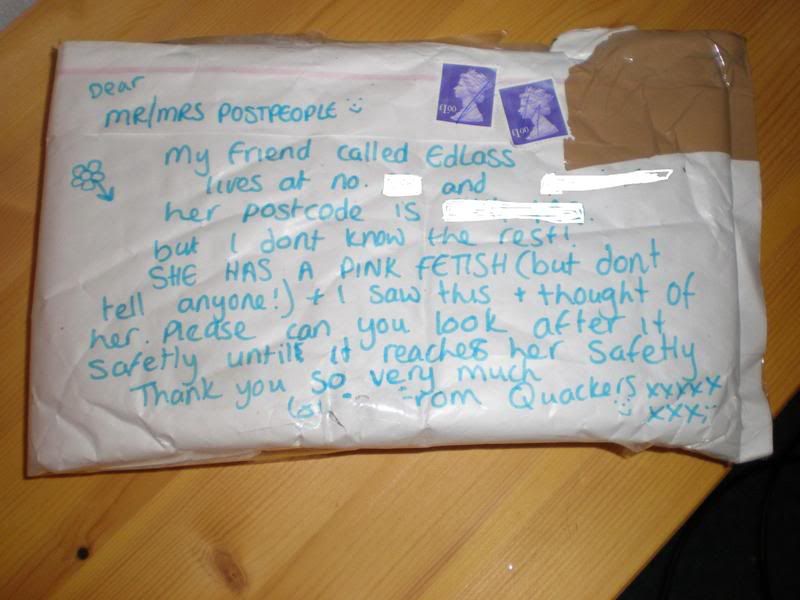 Dear
MR/MRS POSTPEOPLE
£1.00
£1.00
My friend called EdLass
lives at no. and
her postcode is
but I dont know the rest!
SHE HAS A PINK FETISH (but dont
tell anyone!) + I saw this + thought of
her. Please can you look after it
Safetly untill it reaches her Safetly
Thank you so very much
From Quackers xxxxx
xxx